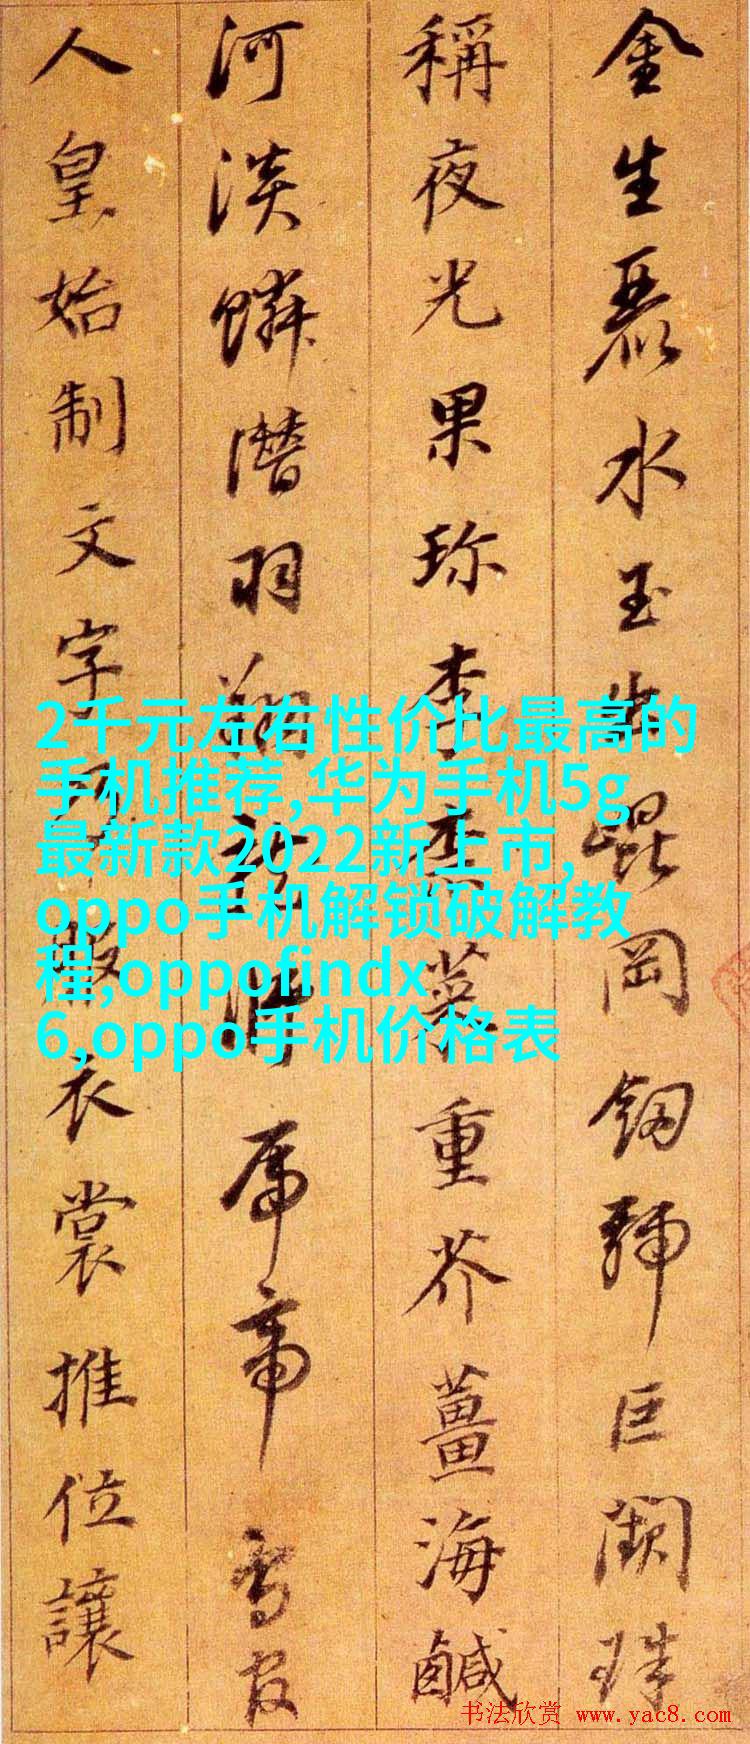 金生麗水玉出崐岡釰號巨闕珠
稱夜光果珎李柰菜重芥薑海鹹
河淡鱗潛羽翔龍師火帝鳥官
人皇始制文字乃服衣裳推位讓
2千元左右性价比最高的
手机推荐,华为手机5g
最新款2022新上市,
oppo手机解锁破解教
程,oppofindx
6,oppo手机价格表
书法欣赏 www.yac8.com